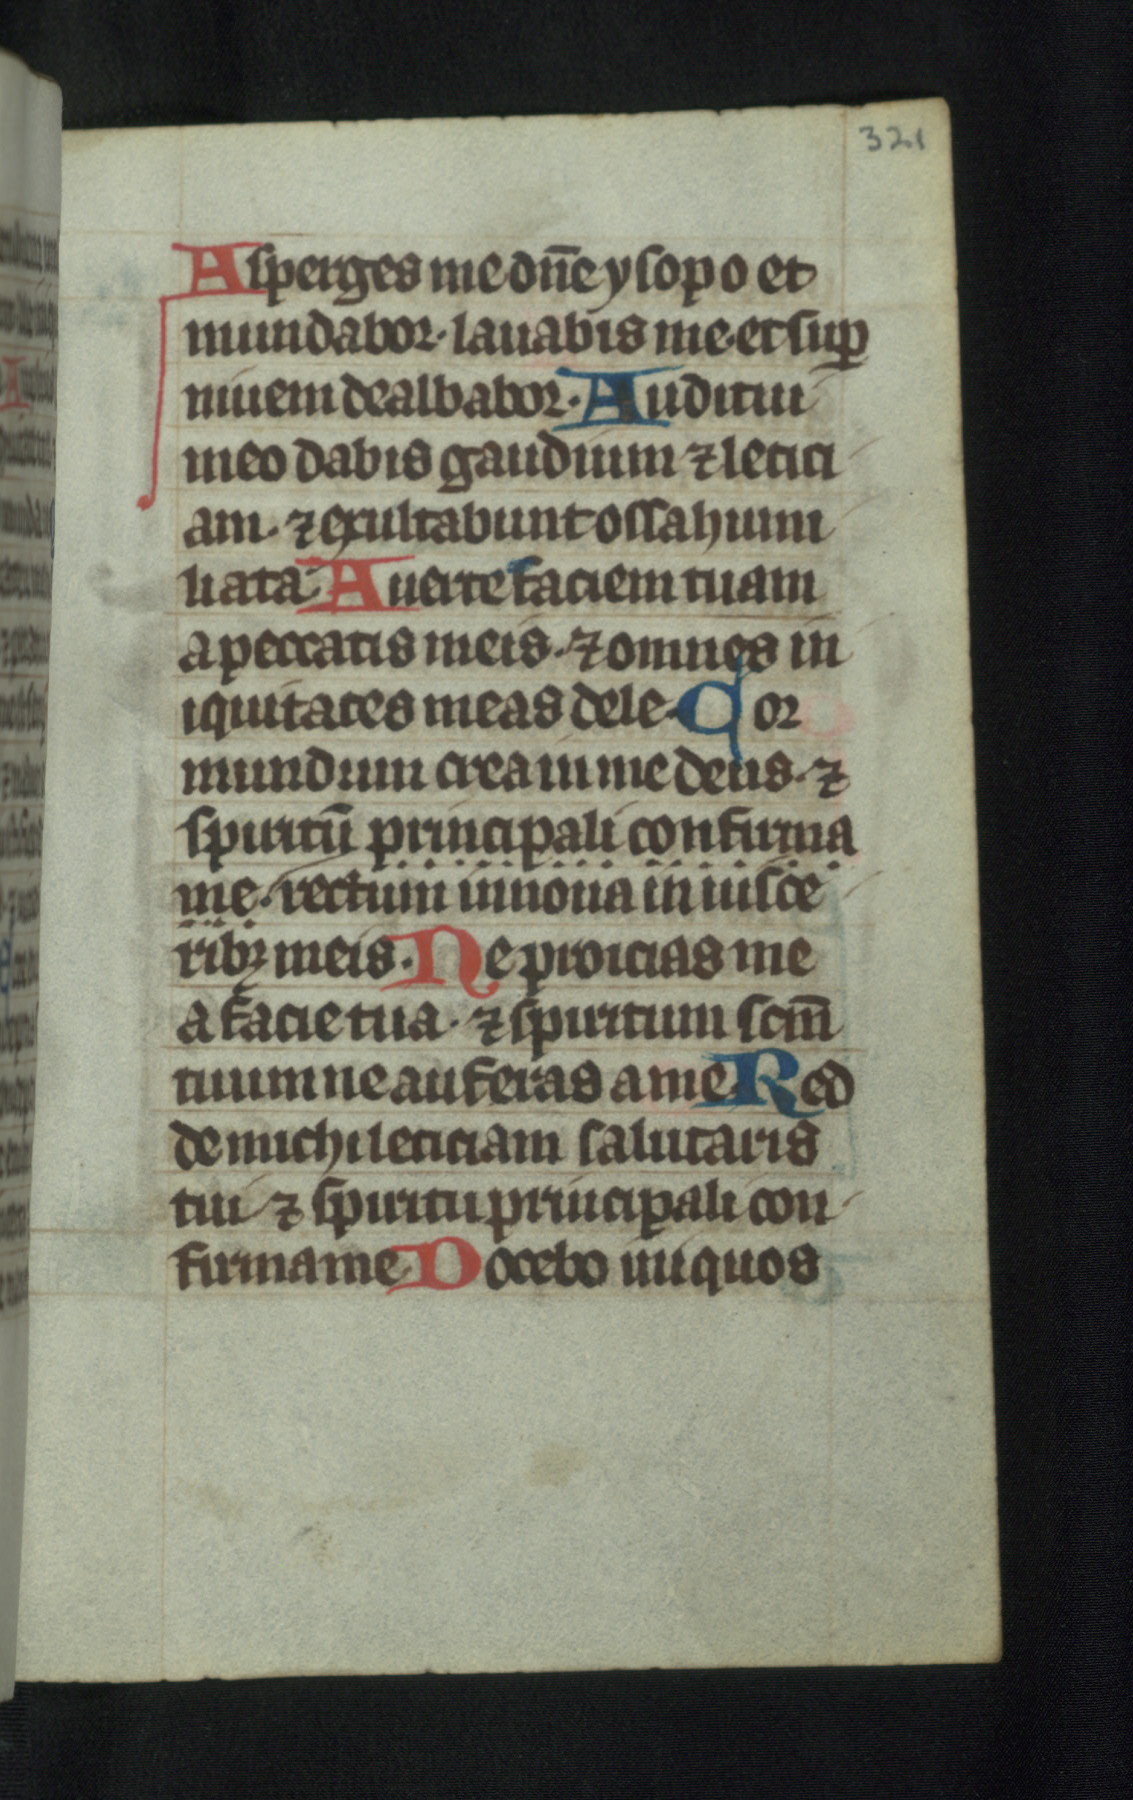 321
Asperges me dn̄e ysopo et
mundabor · lauabis me · et suꝑ
niuem dealbabor · Auditui
meo dabis gaudium ⁊ leticı
am · ⁊ exultabunt ossa humi
liata · Auerte faciem tuam
a peccatis meis · ⁊ omnes in
iquitates meas dele · Cor
mundum crea in me deus · ⁊
spiritū principali confirma
me · rectum innoua in uisce
ribꝫ meis · Ne proicias me
a facie tua · ⁊ spiritum scm̄
tuum ne auferas a me Red
de michi leticiam salutaris
tui ⁊ spiritu principali con
firma me Docebo iniquos